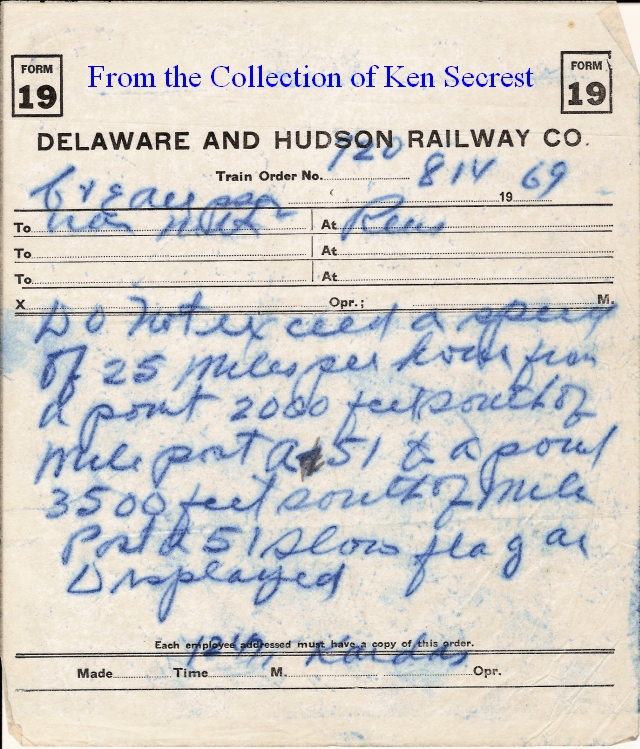 From the Collection of Ken Secrest
FORM 19
FORM 19
DELAWARE AND HUDSON RAILWAY CO.
Train Order No. 720 8 14 1969
To At Rens
To At
To At
X Opr.; M.
Do not exceed a speed
of 25 Miles per hour from
a point 2000 feet south of
Mile post a 51 to a point
3500 feet south of Mile
Post a 51 slow flag are
Displayed
Each employee addressed must have a copy of this order.
Made Time M. Opr.